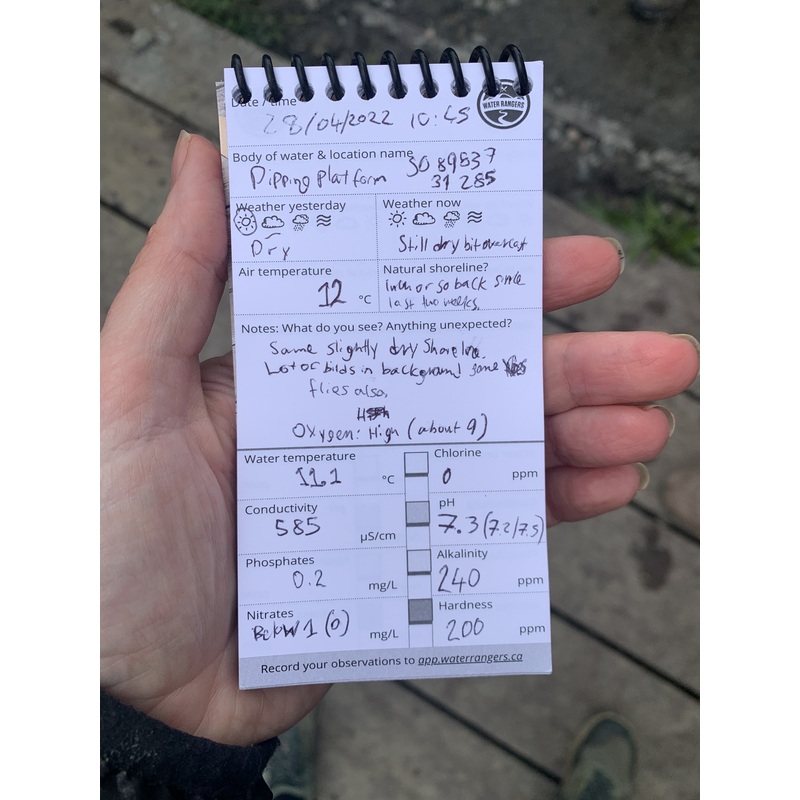 Date / time
WATER RANGERS
28/04/2022 10:45
Body of water & location name
Dipping platform SO 89837
31 285
Weather yesterday
Dry
Weather now
Still dry bit overcast
Air temperature
12 °C
Natural shoreline?
Inch or so back since
last two weeks.
Notes: What do you see? Anything unexpected?
Same slightly dry Shoreline.
Lot of birds in background some
flies also.
Oxygen: High (about 9)
Water temperature
11.1 °C
Chlorine
0 ppm
Conductivity
585 µS/cm
pH
7.3 (7.2/7.5)
Phosphates
0.2 mg/L
Alkalinity
240 ppm
Nitrates
Below 1 (0) mg/L
Hardness
200 ppm
Record your observations to app.waterrangers.ca